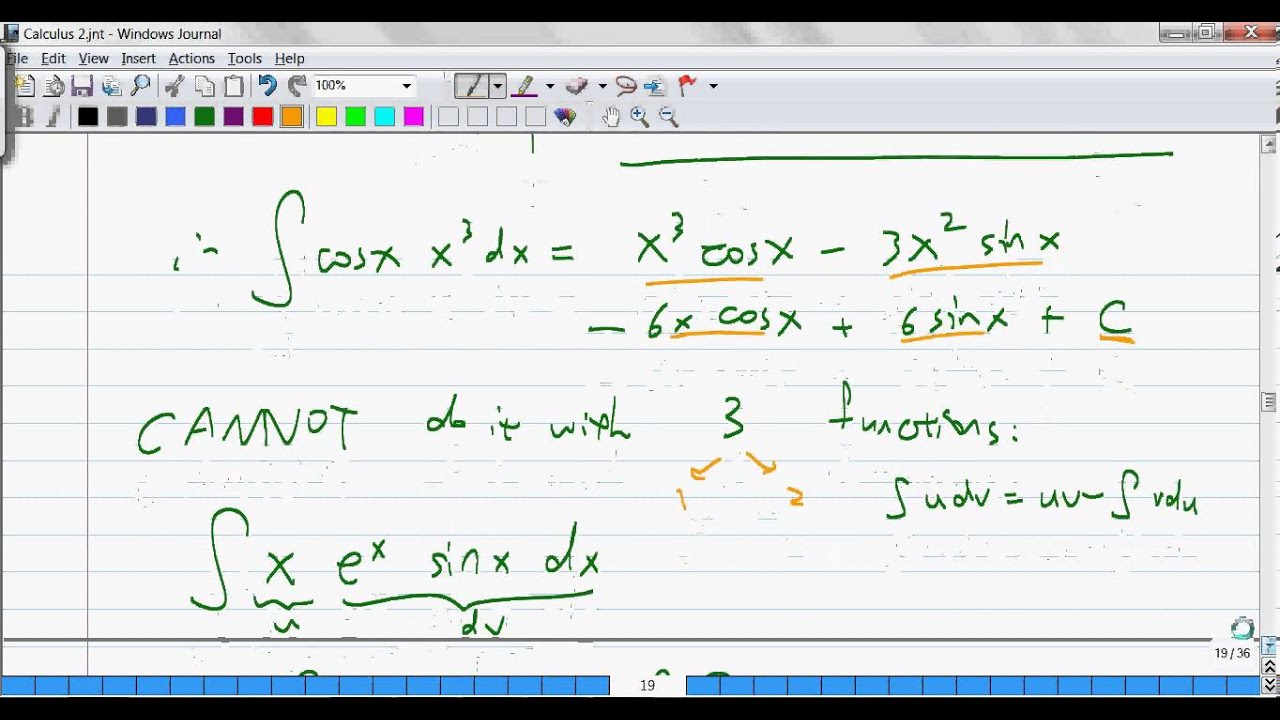 Calculus 2.jnt - Windows Journal
File Edit View Insert Actions Tools Help
100%
∫ cosx x³ dx = x³ cosx - 3x² sin x
- 6x cosx + 6 sinx + C
CANNOT do it with 3 functions:
1 2
∫ u dv = uv - ∫ vdu
∫ x eˣ sinx dx
u dv
19 / 36
19